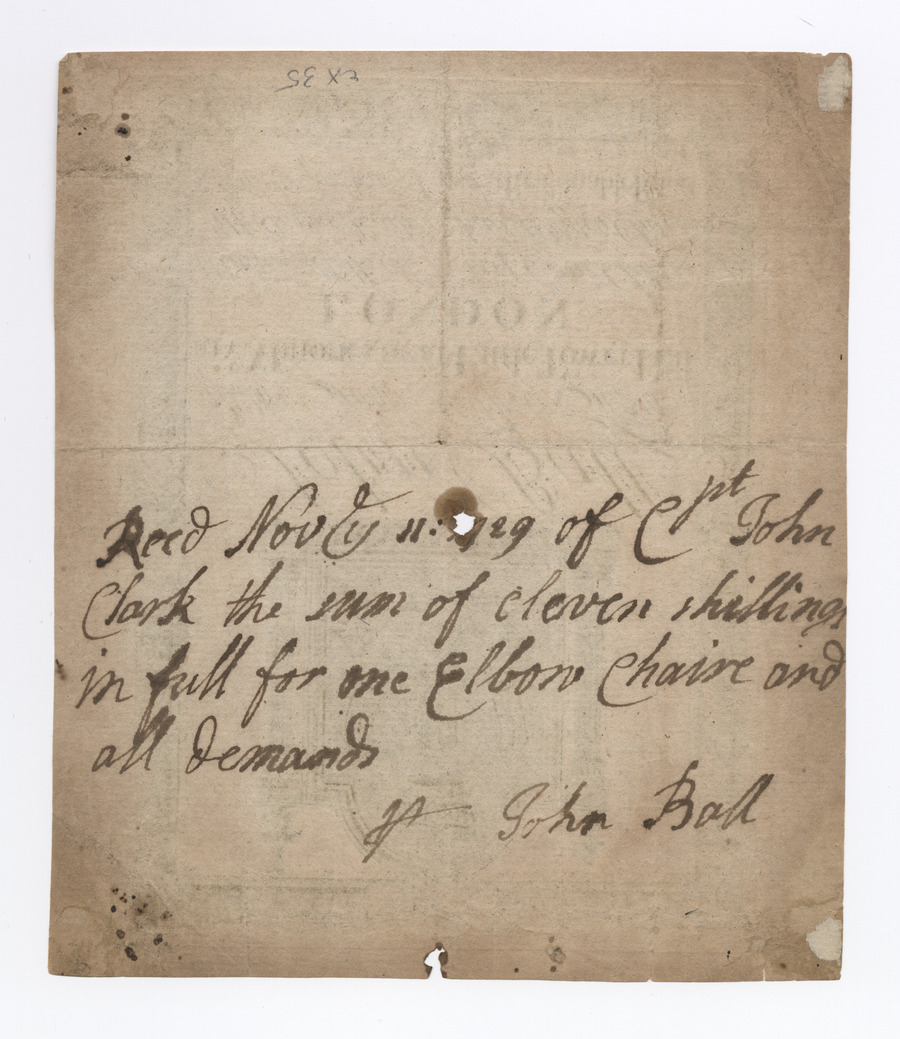 Recd Nov ye 11: 1729 of Cpt John
Clark the sum of eleven shillings
in full for one Elbow Chaire and
all demands
John Ball
LONDON